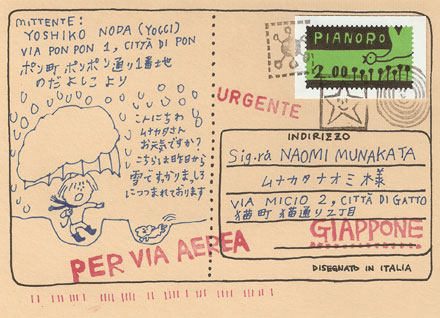 MITTENTE:
YOSHIKO NODA (YOCCI)
VIA PON PON 1, CITTÀ DI PON
ポン町 ポンポン通り1番土地
のだ よしこ より
こんにちわ
ムナカタさん
お天気ですか?
こちらは昨日から
雪ですから まっしろ
につつまれております
PIANORO
2.00
URGENTE
INDIRIZZO
Sig.ra NAOMI MUNAKATA
ムナカタナオミ 様
VIA MICIO 2, CITTÀ DI GATTO
猫町 猫通り2丁目
GIAPPONE
PER VIA AEREA
DISEGNATO IN ITALIA